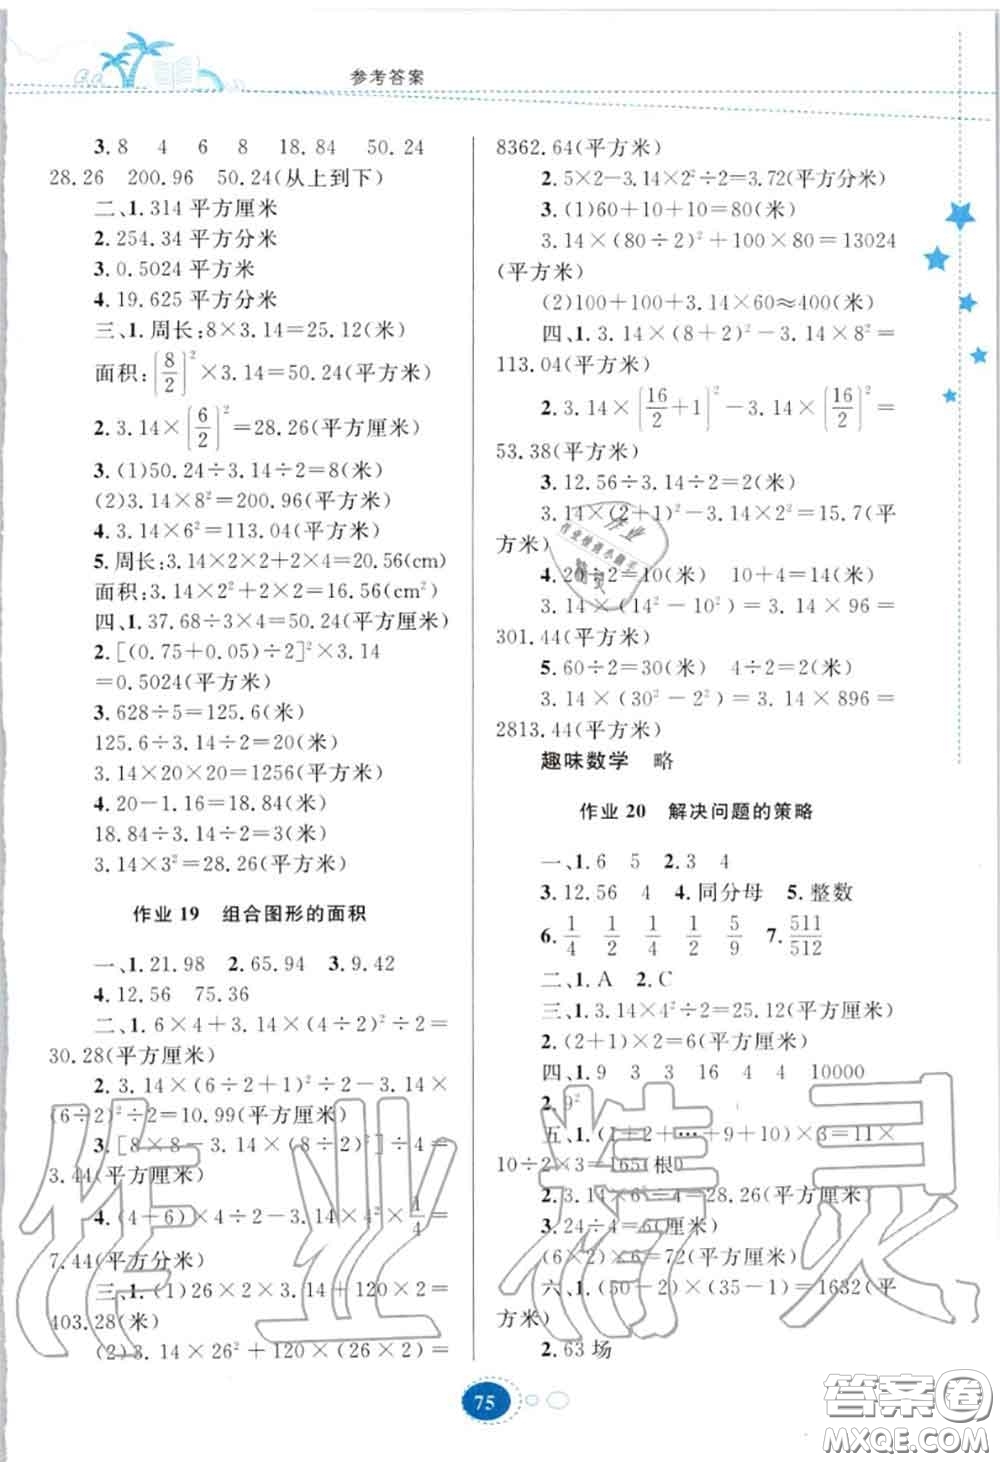 参考答案
3.8 4 6 8 18.84 50.24
28.26 200.96 50.24(从上到下)
二、1.314 平方厘米
2.254.34 平方分米
3.0.5024 平方米
4.19.625 平方分米
三、1.周长:8×3.14=25.12(米)
面积:[8/2]²×3.14=50.24(平方米)
2.3.14×[6/2]²=28.26(平方厘米)
3.(1)50.24÷3.14÷2=8(米)
(2)3.14×8²=200.96(平方米)
4.3.14×6²=113.04(平方米)
5.周长:3.14×2×2+2×4=20.56(cm)
面积:3.14×2²+2×2=16.56(cm²)
四、1.37.68÷3×4=50.24(平方厘米)
2.[(0.75+0.05)÷2]²×3.14
=0.5024(平方米)
3.628÷5=125.6(米)
125.6÷3.14÷2=20(米)
3.14×20×20=1256(平方米)
4.20-1.16=18.84(米)
18.84÷3.14÷2=3(米)
3.14×3²=28.26(平方米)
作业 19 组合图形的面积
一、1.21.98 2.65.94 3.9.42
4.12.56 75.36
二、1.6×4+3.14×(4÷2)²÷2=
30.28(平方厘米)
2.3.14×(6÷2+1)²÷2-3.14×
(6÷2)²÷2=10.99(平方厘米)
3.[8×8-3.14×(8÷2)²]÷4=
3.44(平方厘米)
4.(4+6)×4÷2-3.14×4²×1/4=
7.44(平方分米)
三、1.(1)26×2×3.14+120×2=
403.28(米)
(2)3.14×26²+120×(26×2)=
8362.64(平方米)
2.5×2-3.14×2²÷2=3.72(平方分米)
3.(1)60+10+10=80(米)
3.14×(80÷2)²+100×80=13024
(平方米)
(2)100+100+3.14×60≈400(米)
四、1.3.14×(8+2)²-3.14×8²=
113.04(平方米)
2.3.14×[16/2+1]²-3.14×[16/2]²=
53.38(平方米)
3.12.56÷3.14÷2=2(米)
3.14×(2+1)²-3.14×2²=15.7(平
方米)
4.20÷2=10(米) 10+4=14(米)
3.14×(14²-10²)=3.14×96=
301.44(平方米)
5.60÷2=30(米) 4÷2=2(米)
3.14×(30²-2²)=3.14×896=
2813.44(平方米)
趣味数学 略
作业 20 解决问题的策略
一、1.6 5 2.3 4
3.12.56 4 4.同分母 5.整数
6.1/4 1/2 1/4 1/2 5/9 7.511/512
二、1.A 2.C
三、1.3.14×4²÷2=25.12(平方厘米)
2.(2+1)×2=6(平方厘米)
四、1.9 3 3 16 4 4 10000
2.9²
五、1.(1+2+…+9+10)×3=11×
10÷2×3=165(根)
2.3.14×6²÷4=28.26(平方厘米)
3.24÷4=6(厘米)
(6×2)×6=72(平方厘米)
六、1.(50-2)×(35-1)=1632(平
方米)
2.63 场
75
作业精灵
答案圈
MXQE.COM